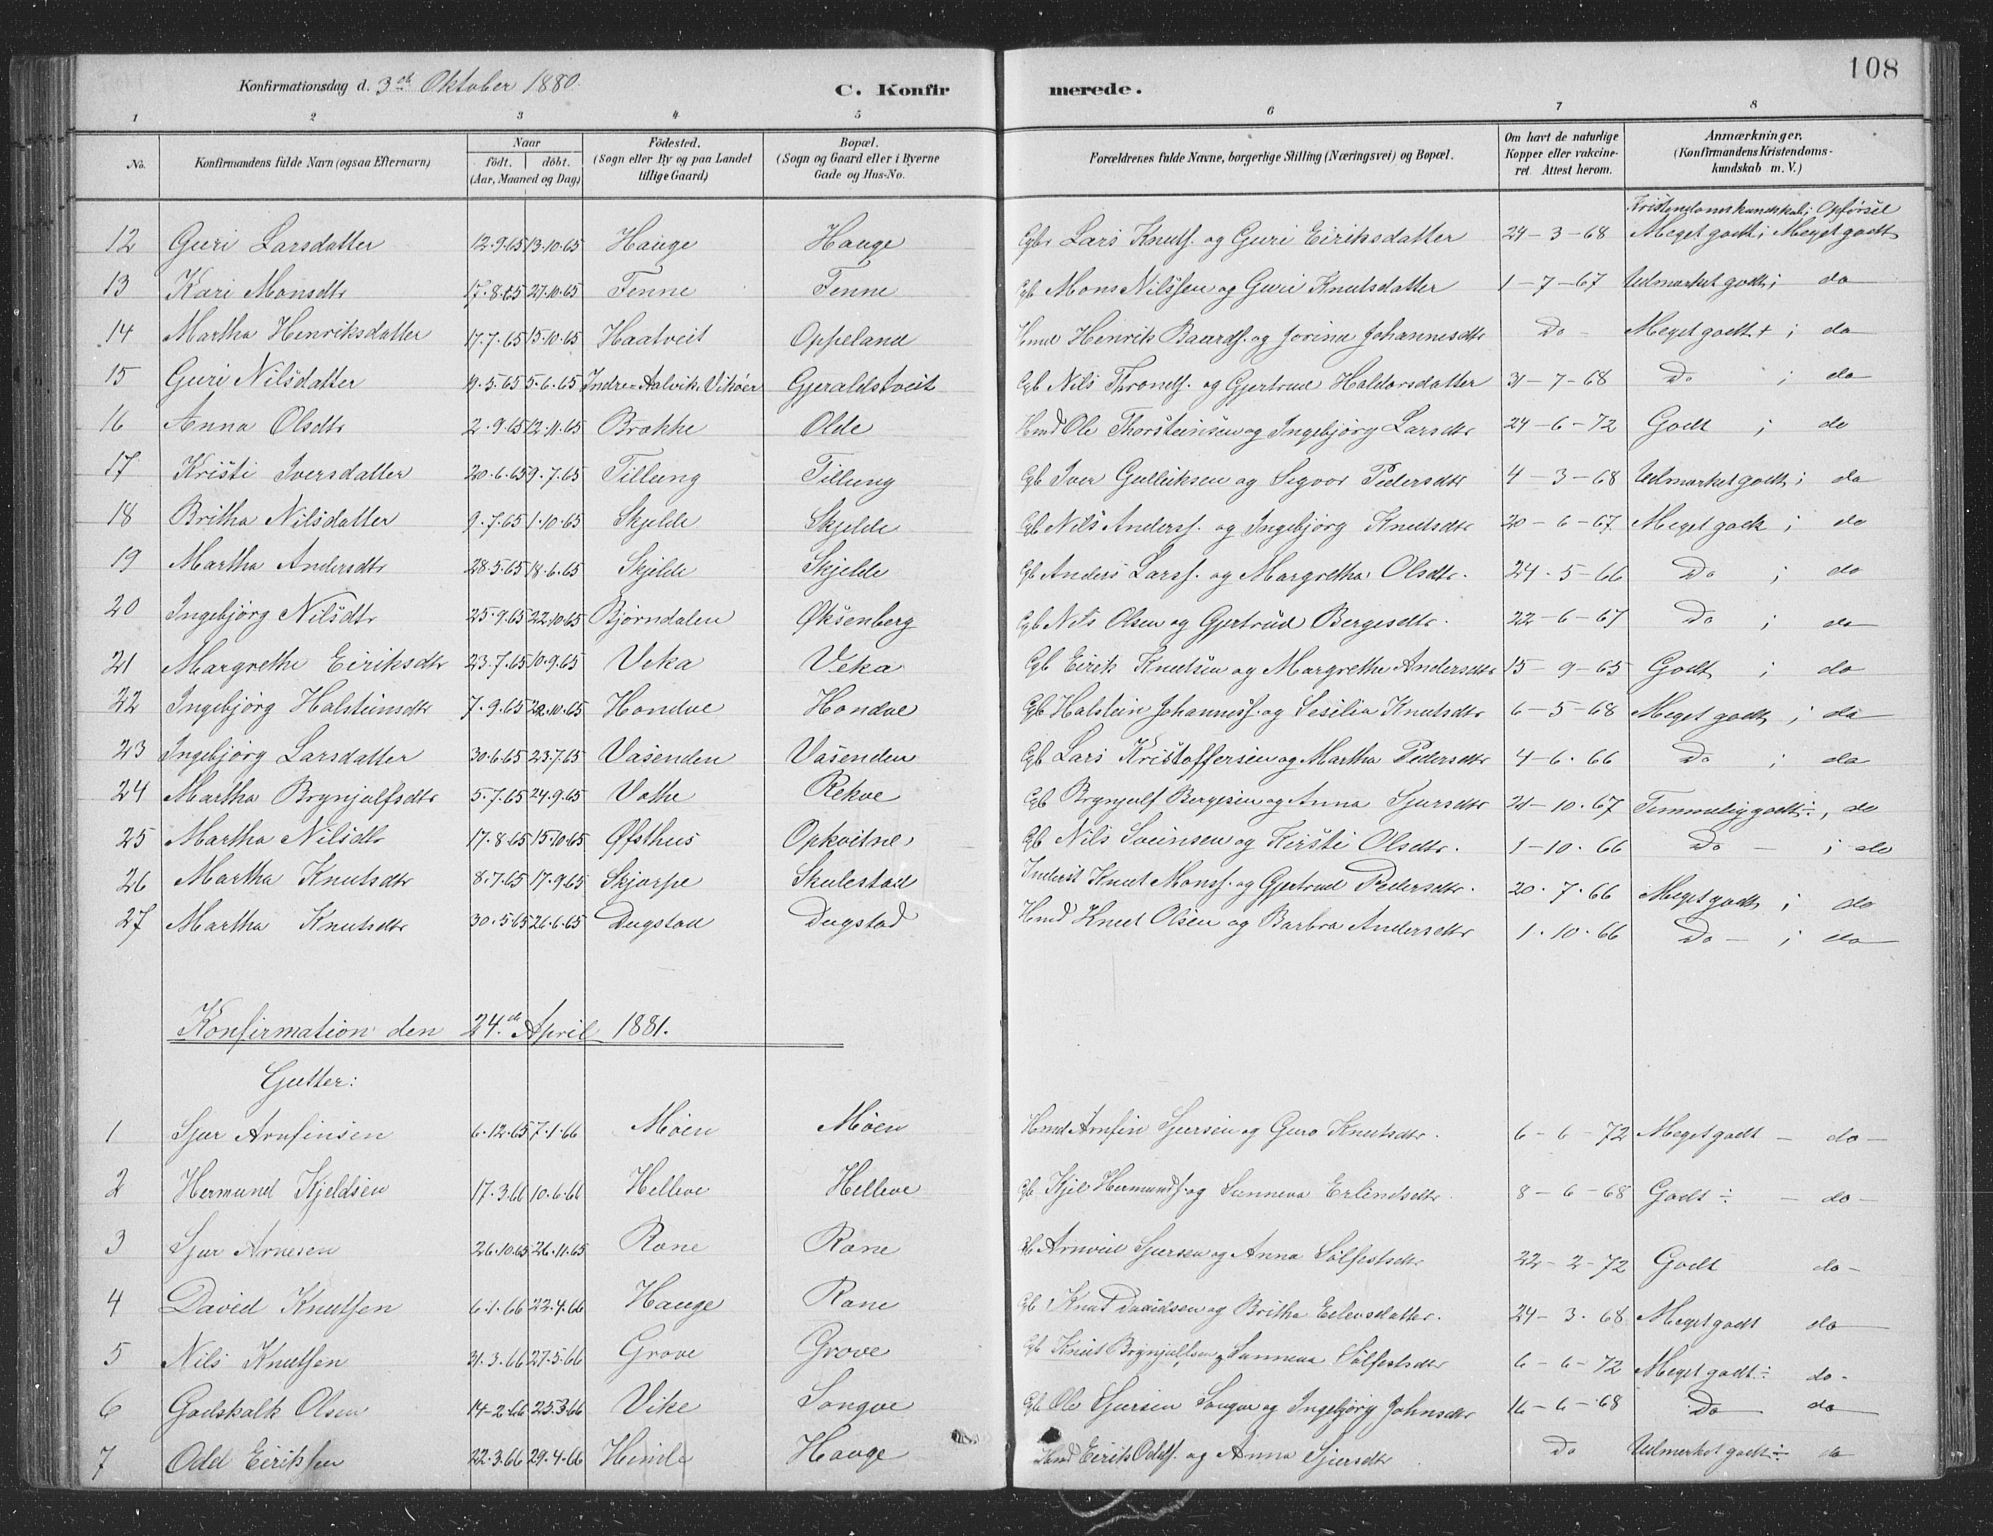 108
Konfirmationsdag d. 3die Oktober 1880. C. Konfirmerede.
1 2 3 4 5 6 7 8
No. Konfirmandens fulde Navn (ogsaa Efternavn) Naar født. døbt. (Aar, Maaned og Dag) Fødested. (Sogn eller By og paa Landet tillige Gaard) Bopæl. (Sogn og Gaard eller i Byerne Gade og Hus-No. Forældrenes fulde Navne, borgerlige Stilling (Næringsvei) og Bopæl. Om havt de naturlige Kopper eller vakcineret. Attest herom. Anmærkninger. (Konfirmandens Kristendomskundskab m. V.)
Kristendomskundskab; Opførsel
12 Guri Larsdatter 12.9.65 13.10.65 Hauge Hauge Gbr Lars Knuts. og Guri Eiriksdatter 24-3-68 Meget godt; Meget godt
13 Kari Monsdtr 17.8.65 27.10.65 Tenne Tenne Gb Mons Nilssen og Guri Knutsdatter 1-7-67 Udmærket godt; do
14 Martha Henriksdatter 17.7.65 15.10.65 Haatveit Oppeland Hmd Henrik Baards. og Jorina Johannesdtr Do - Meget godt + ; do
15 Guri Nilsdatter 9.5.65 5.6.65 Indre-Aalvik Vikøer Gjeraldstveit Gb Nils Thronds. og Gjertrud Haldorsdatter 31-7-68 Do ; do
16 Anna Olsdtr 2.9.65 12.11.65 Brække Olde Hmd Ole Thorsteinsen og Ingebjørg Larsdtr 24-6-72 Godt ; do
17 Kristi Iversdatter 20.6.65 9.7.65 Tillung Tillung Gb Iver Gulliksen og Sigvor Pedersdtr 4-3-68 Udmærket godt; do
18 Britha Nilsdatter 9.7.65 1.10.65 Skjelde Skjelde Gb Nils Anders. og Ingebjørg Knutsdtr 20-6-67 Meget godt ; do
19 Martha Andersdtr 28.5.65 18.6.65 Skjelde Skjelde Gb Anders Lars. og Margretha Olsdtr. 24.5-66 Do ; do
20 Ingebjørg Nilsdtr 25.9.65 22.10.65 Bjørndalen Øksenberg Gb Nils Olsen og Gjertrud Bergesdtr. 22-6-67 Do ; do
21 Margrethe Eiriksdtr 23.7.65 10.9.65 Veka Veka Gb Eirik Knutsen og Margrethe Andersdtr 15-9-65 Godt ; do
22 Ingebjørg Halsteinsdtr 7.9.65 22.10.65 Hondve Hondve Gb Halstein Johanness. og Sesilia Knutsdtr 6-5-68 Meget godt ; do
23 Ingebjørg Larsdatter 30.6.65 23.7.65 Vasenden Vasenden Gb Lars Kristoffersen og Martha Pedersdtr 4-6.66 Do ; do
24 Martha Brynjulfsdtr 5.7.65 24.9.65 Vathe Rekve Gb Brynjulf Bergesen og Anna Sjursdtr 21-10.67 Temmelig godt÷, do
25 Martha Nilsdtr 17.8.65 15.10.65 Øfsthus Opkvitne Gb Nils Sveinsen og Kirsti Olsdtr. 1-10.66 Do - ; do
26 Martha Knutsdtr 8.7.65 17.9.65 Skjorpe Skulestad Inderst Knut Mons. og Gjertrud Pedersdtr. 20.7.66 Meget godt ; do
27 Martha Knutsdtr 30.5.65 26.6.65 Dugstad Dugstad Hmd Knut Olsen og Barbra Andersdtr 1.10.66 Do - ; do
Konfirmation den 24de April 1881.
Gutter:
1 Sjur Arnfinsen 6.12.65 7.1.66 Møen Møen Hmd Arnfin Sjursen og Guro Knutsdtr. 6-6-72 Meget godt - do -
2 Hermund Kjeldsen 17.3.66 10.6.66 Helleve Helleve Gb Kjel Hermunds. og Sunneva Erlendsdtr. 8-6-68 Godt ÷ - do -
3 Sjur Arnesen 26.10.65 26.11.65 Rone Rone Gb Sjursen og Anna Sølfestsdtr 22-2-72 Godt do -
4 David Knutsen 6.1.66 22.4.66 Hauge Rone Gb Knut Davidsen og Britha datter. 24-3.68 Meget godt do
5 Nils Knutsen 31.3.66 27.5.66 Grove Grove Gb Knut Brynjulsen og Sunneva Sølfestsdtr 6-6-72 Meget godt ÷ do -
6 Godskalk Olsen 14-2.66 25.3.66 Vike Songve Gb Ole Sjursen Songve og Ingebjørg Johnsdtr 16-6-68 Do do
7 Odd Eiriksen 22.3.66 29.4.66 Himle Hauge Hmd Eirik Odds. og Anna Sjursdtr Do Udmerket godt÷ do